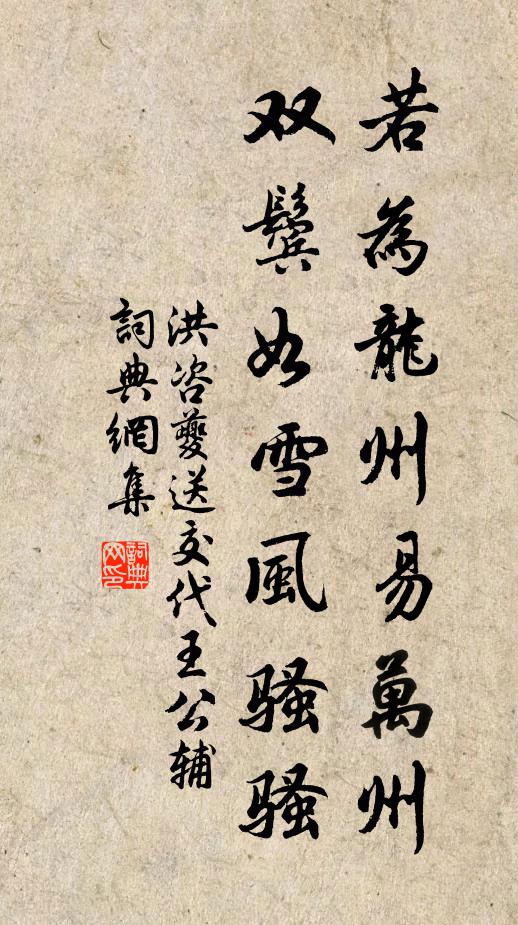 若為龍州易萬州
双鬢如雪風骚骚
洪咨夔送交代王公辅
詞典網集
詞典网印